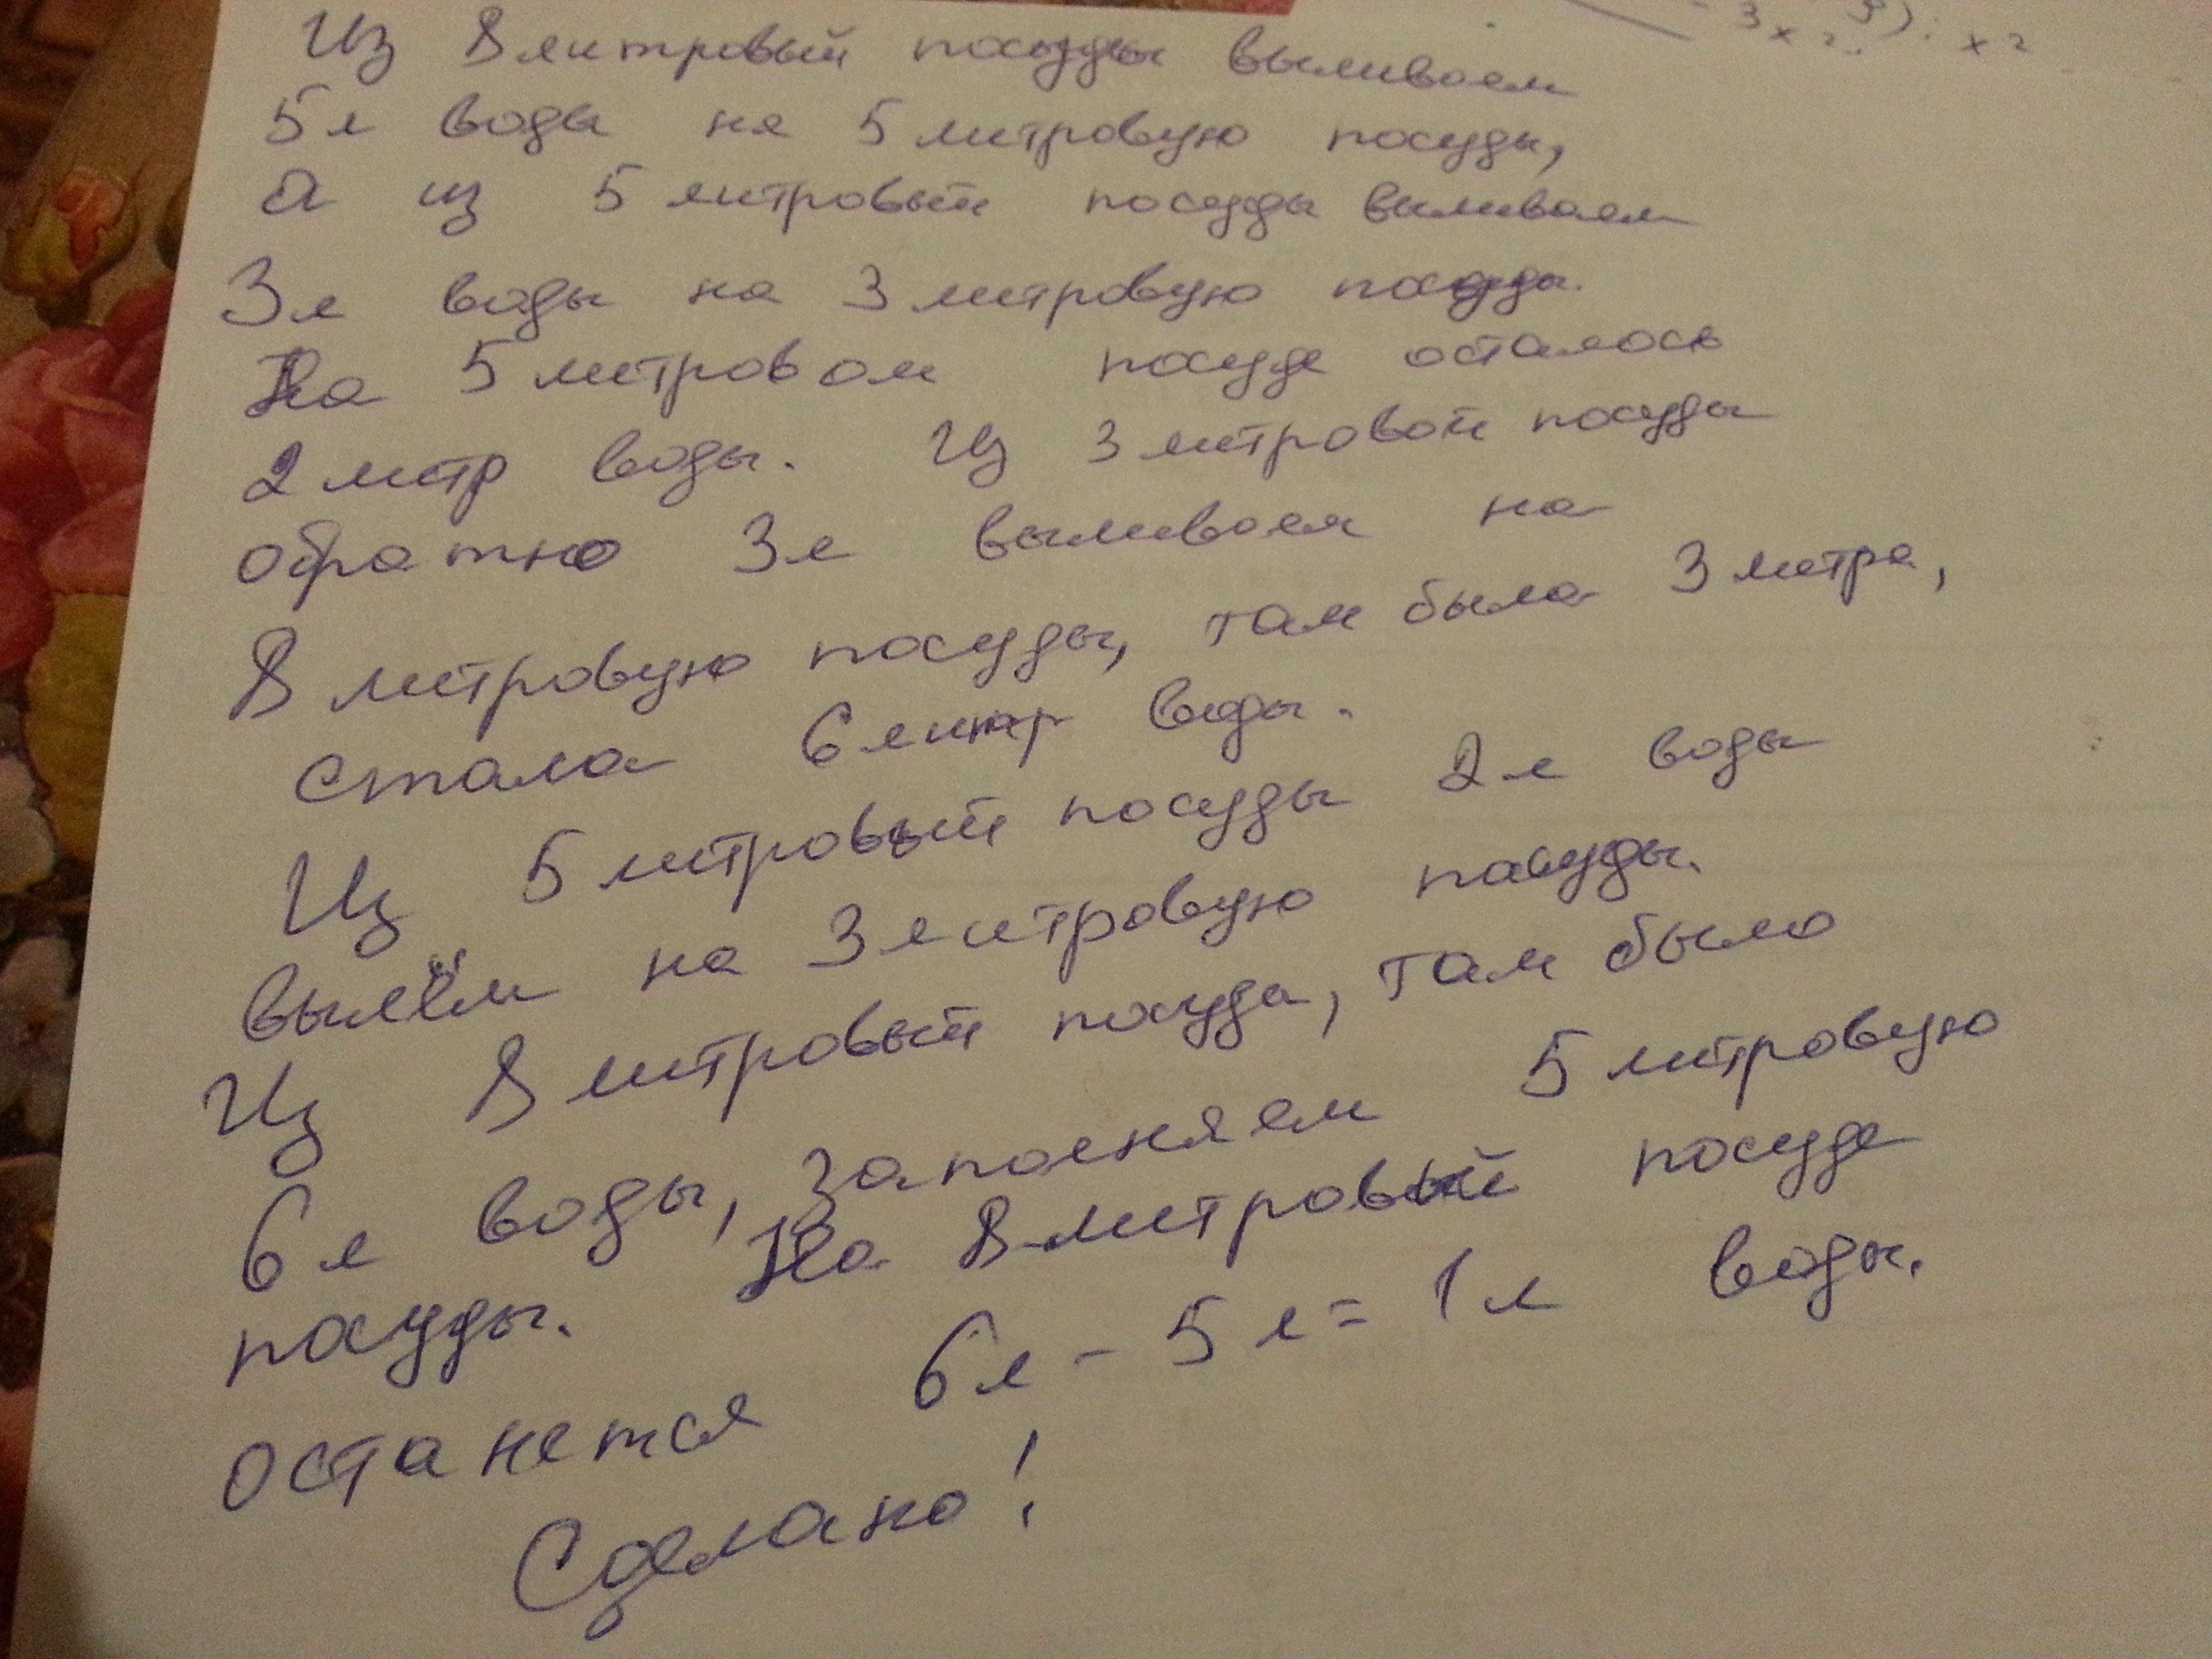 3x²
x²
Из 8 литровый посуды выливаем
5л воды на 5 литровую посуды,
а из 5 литровый посуды выливаем
3л воды на 3 литровую посуды.
На 5 литровом посуде осталось
2 литр воды. Из 3 литровой посуды
обратно 3л выливаем на
8 литровую посуды, там была 3 литра,
стала 6 литр воды.
Из 5 литровый посуды 2л воды
вылём на 3 литровую посуды.
Из 8 литровый посуда, там было
6л воды, заполняем 5 литровую
посуды. На 8-литровый посуде
останется 6л - 5л = 1л воды.
Сделано!